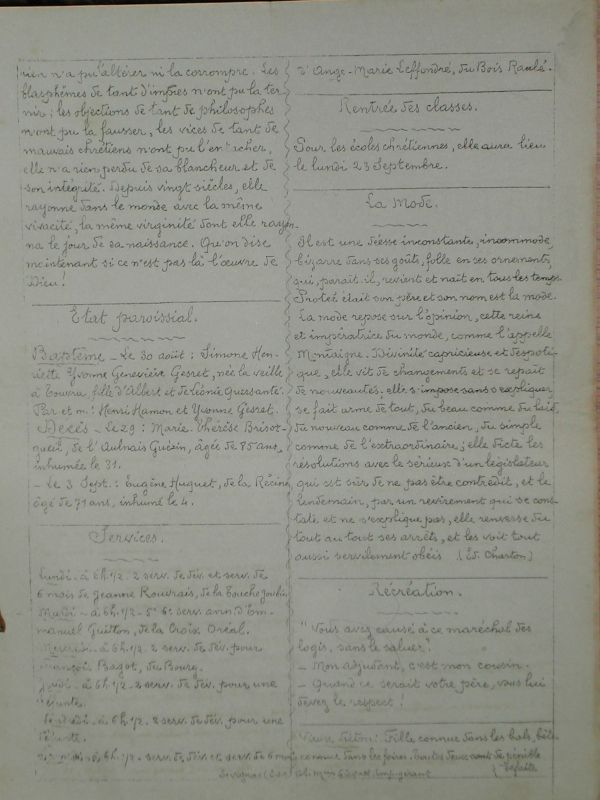 rien n'a pu l'altérer ni la corrompre. Les
blasphèmes de tant d'impies n'ont pu la ter
nir; les objections de tant de philosophes
n'ont pu la fausser, les vices de tant de
mauvais chrétiens n'ont pu l'entacher,
elle n'a rien perdu de sa blancheur et de
son intégrité. Depuis vingt siècles, elle
rayonne dans le monde avec la même
vivacité, la même virginité dont elle rayon
na le jour de sa naissance. Qu'on dise
maintenant si ce n'est pas là l'œuvre de
Dieu!
Etat paroissial.
Baptême - Le 30 août: Simone Hen-
riette Yvonne Geneviève Gesret, née la veille
à fille d'Albert et de Léonie Quersanté.
Par et m: Henri Hamon et Yvonne Gesret.
Décès - Le 29: Marie Thérèse Brisot-
de l'Aulnais Guésin, âgée de 85 ans,
inhumée le 31.
- Le 3 Sept.: Eugène Huguet, de la
âgé de 71 ans, inhumé le 4.
Services.
Lundi - à 6h 1/2 - 2 serv. de dév. et serv. de
6 mois de Jeanne Rouvrais, de la
Mardi - à 6h. 1/2 - 5e et serv. ann. d'Em-
manuel Guitton, de la Croix Oréal.
Mercredi - à 6h 1/2 - 2 serv. de dév. pour
François Bagot, du Bourg.
Jeudi - à 6h 1/2 - 2 serv. de dév. pour une
défunte.
Vendredi - à 6h 1/2 - 2 serv. de dév. pour une
défunte.
à 6h 1/2 - serv. de dév. et serv. de 6 mois
d'Ange-Marie Leffondré, du Bois Raulé.
Rentrée des classes.
Pour les écoles chrétiennes, elle aura lieu
le lundi 23 Septembre.
La Mode.
Il est une déesse inconstante, incommode,
bizarre dans ses goûts, folle en ses ornements,
qui, paraît-il, revient et naît en tous les temps.
Protée était son père et son nom est la mode.
La mode repose sur l'opinion, cette reine
et impératrice du monde, comme l'appelle
Montaigne. Divinité capricieuse et despoti-
que, elle vit de changements et se repaît
de nouveautés, elle s'impose sans s'expliquer,
se fait arme de tout, du beau comme du laid,
du nouveau comme de l'ancien, du simple
comme de l'extraordinaire; elle dicte les
résolutions avec le sérieux d'un législateur
qui est sûr de ne pas être contredit, et le
lendemain, par un revirement qui se cons-
tate et ne s'explique pas, elle renverse du
tout au tout ses arrêts, et les voit tout
aussi servilement obéis (Ed. Charton)
Récréation.
"Vous avez causé à ce maréchal des
logis, sans le saluer!
- Mon adjudant, c'est mon cousin.
- Quand ce serait votre père, vous lui
devez le respect!
Vieux dicton: Fille connue dans les bals, bête
connue dans les foires, toutes deux sont de pénible
défaite
gérant